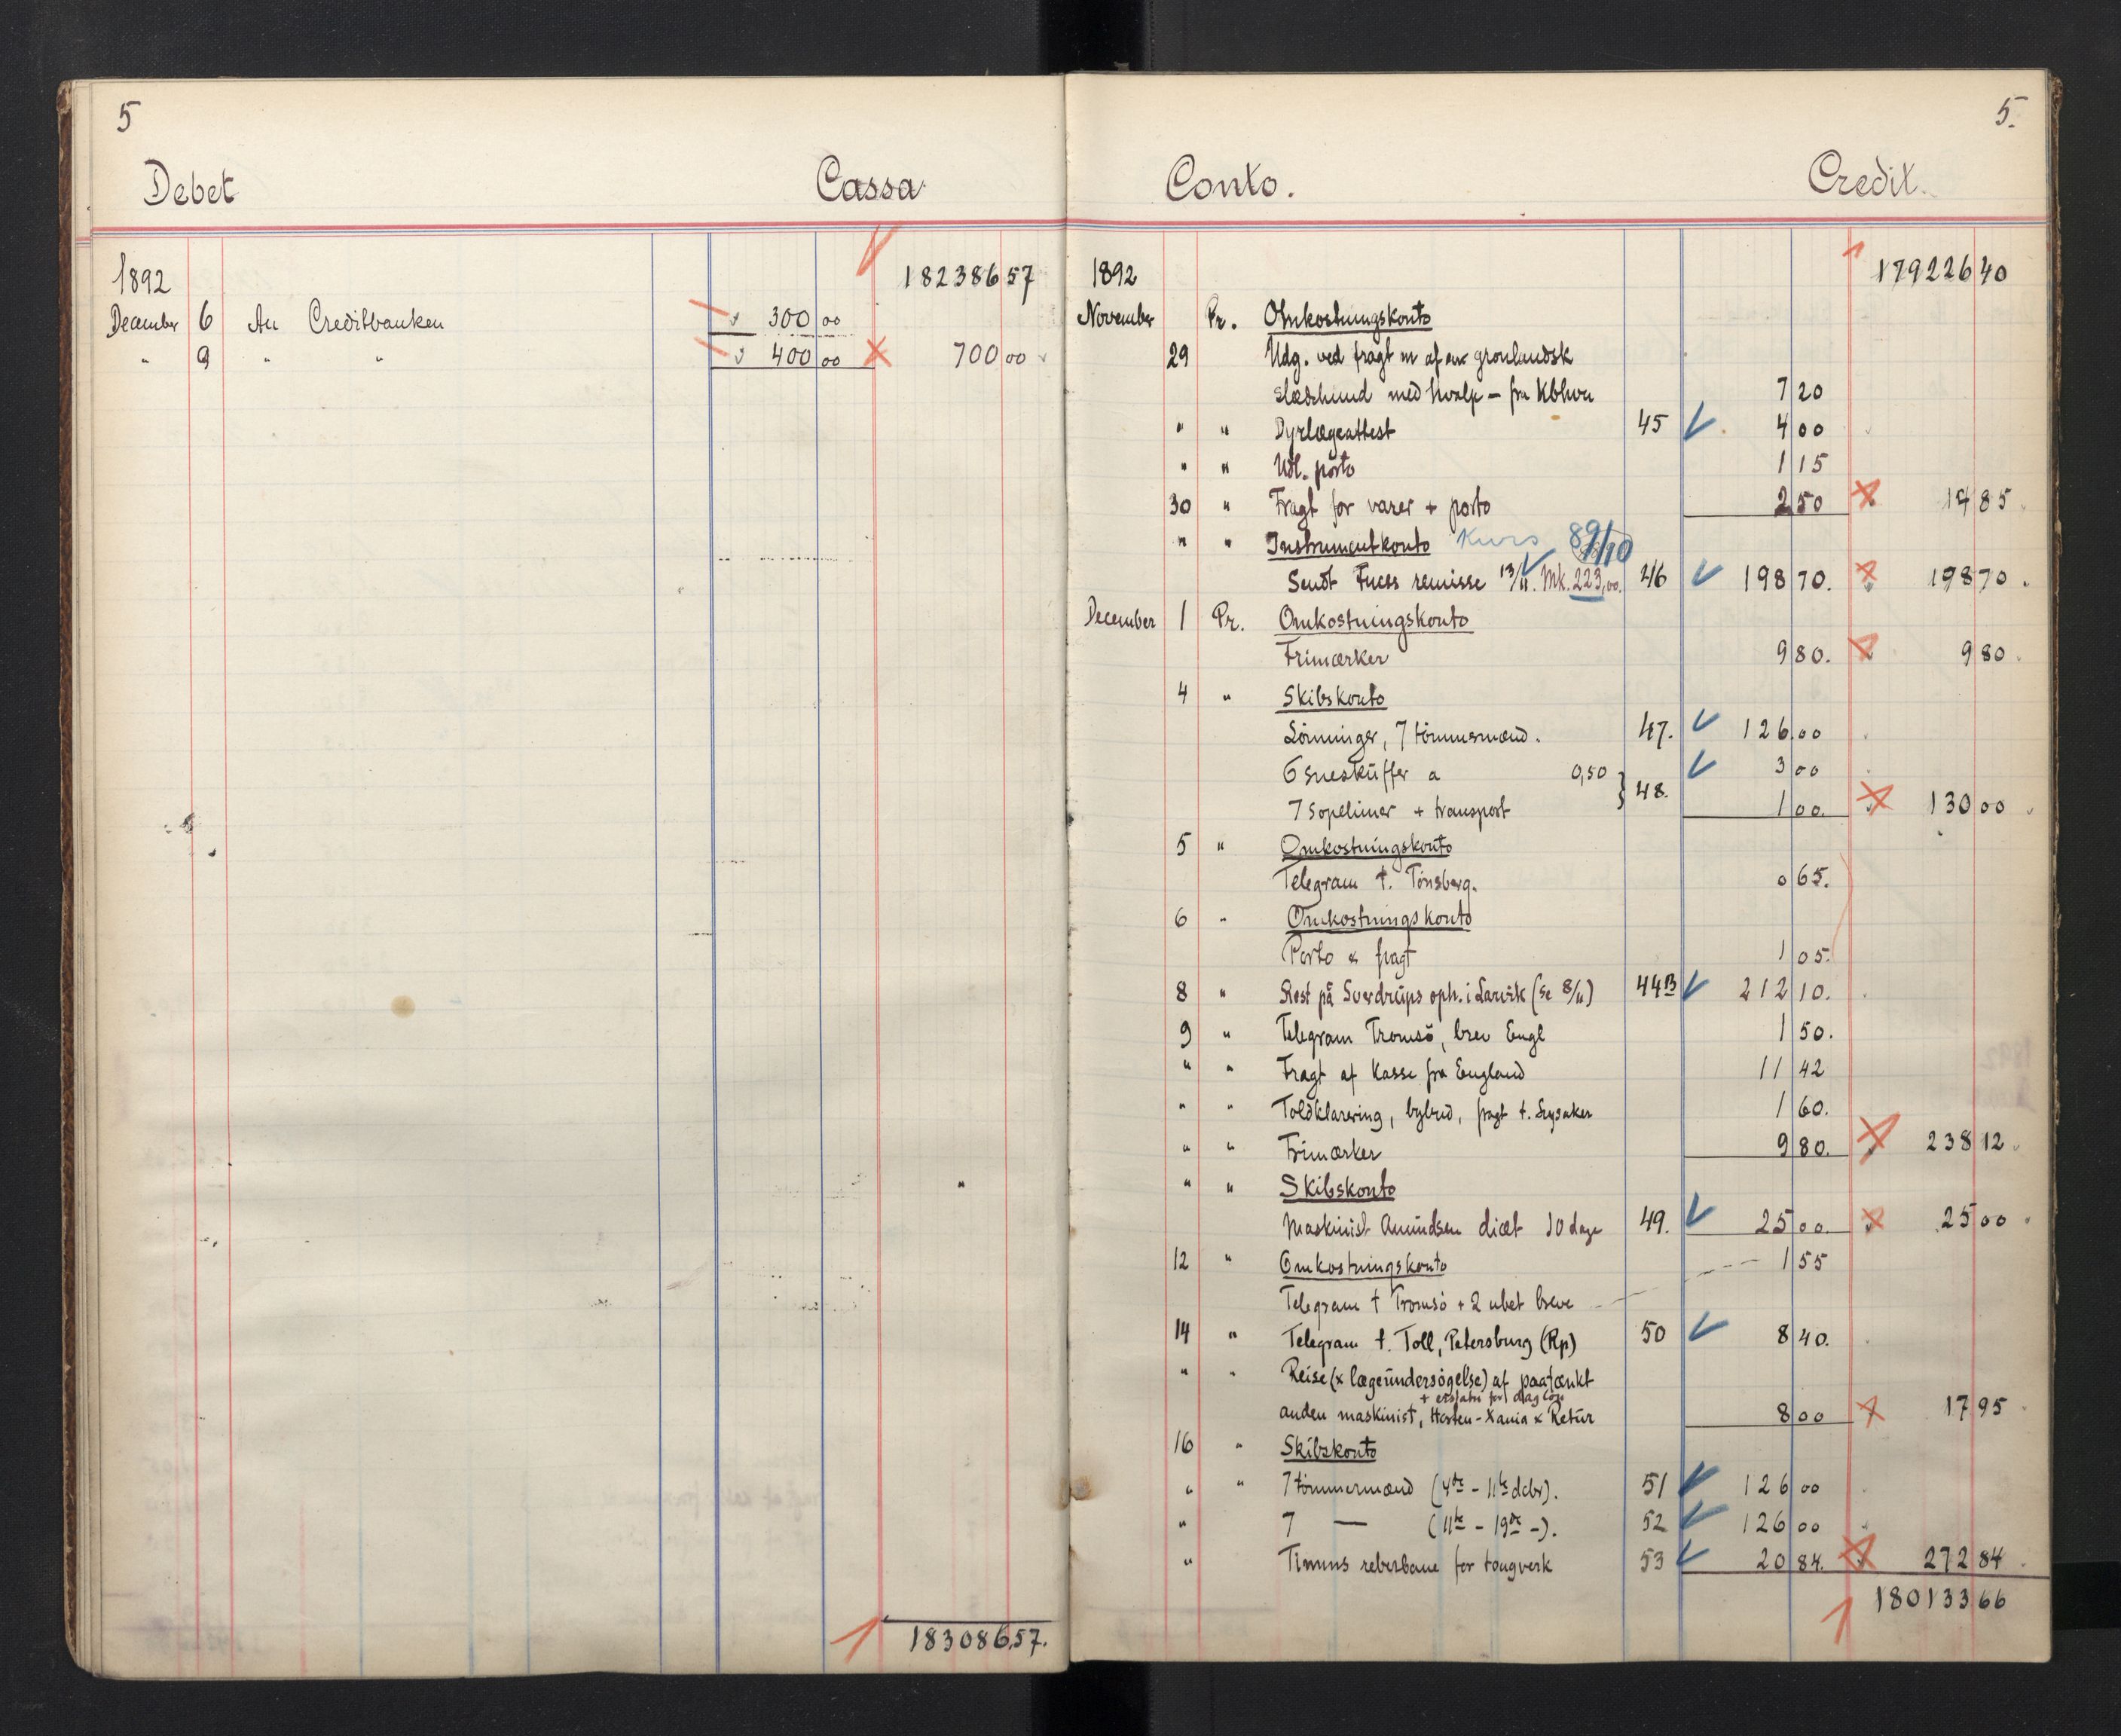 5
Debet Cassa
1892 182386 57
December 6 An Creditbanken 300 00
" 9 " " 400 00 700 00
183086,57.
5.
Conto. Credit.
1892 179226 40
November Pr. Omkostningskonto
29 Udg. ved fragt af grønlandsk
slædehund med hvalp – fra Kbhvn 7 20
" " Dyrlægeattest 45 4 00
" " Udl. porto 1 15
30 " Fragt for varer + porto 2 50 14 85
" " Instrumentkonto Kurs 89/10
Sendt Fuess remisse 13/11. Mk. 223,00. 46 198 70. 198 70.
December 1 Pr. Omkostningskonto
Frimærker 9 80. 9 80.
4 " Skibskonto
Lönninger, 7 tömmermænd. 47. 126,00
6 sneskuffer a 0,50 3 00
48.
7 sopelimer + transport 1 00. 130 00
5 " Omkostningskonto
Telegram t. Tönsberg. 0 65.
6 " Omkostningskonto
Porto & fragt 1 05.
8 " Rest på Sverdrups oph. i Larvik (se 8/11) 44B 212 10.
9 " Telegram Tromsö, brev Engl 1 50.
" " Fragt af Kasse fra England 11 42
" " Toldklarering, bybud, fragt t. Lysaker 1 60.
" " Frimærker 9 80. 238 12
" " Skibskonto
Maskinist Amundsen diæt 10 dage 49. 25 00. 25 00
12 " Omkostningskonto 1 55
Telegram t Tromsö + 2 ubet breve
14 " Telegram t. Toll, Petersburg (Rp) 50 8 40.
" " Reise (x lægeundersögelse) af paatænkt
+ erstatn for daglön
anden maskinist, Horten-Xania x Retur 8 00 17 95
16 " Skibskonto
" " 7 tömmermænd (4de – 11te dcbr). 51 126 00
" 7 — (11te – 19de –). 52 126 00
" Timms reberbane for tougverk 53 20 84. 272 84
180133 66